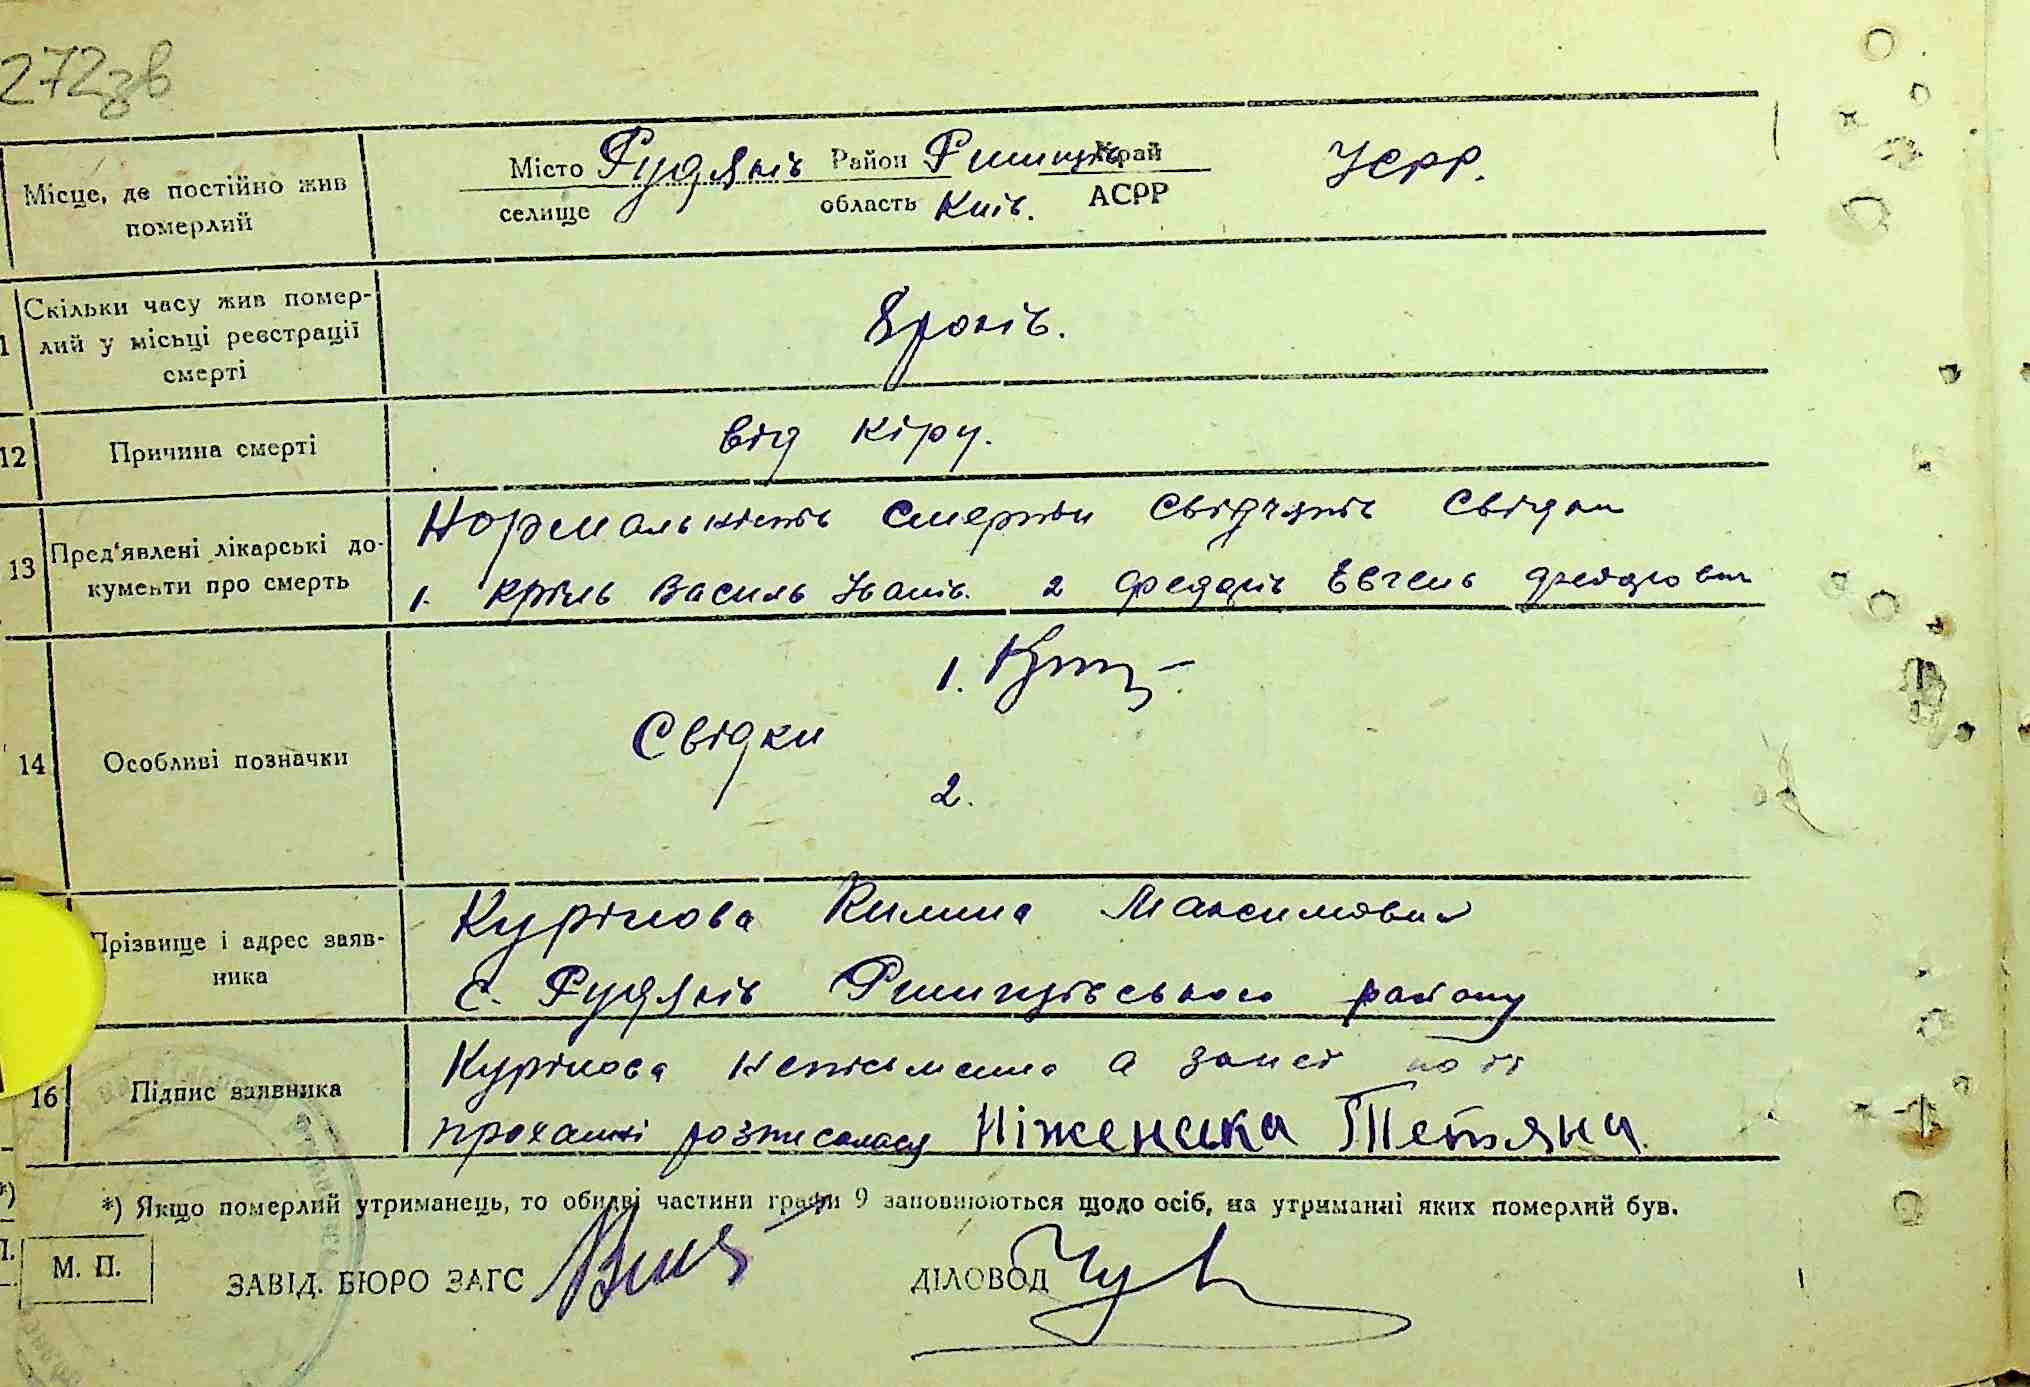 272зв
Місце, де постійно жив
померлий
Місто Рудяків Район Ржищів Край УСРР.
селище область Київ. АСРР
Скільки часу жив помер-
лий у місьці реєстрації
смерті
8 років.
12 Причина смерті
від кіру.
13 Пред'явлені лікарські до-
кументи про смерть
Нормальність смерти свідчять свідки
1. Кріль Василь Іванів. 2 Евгень
14 Особливі позначки
Свідки
1.
2.
Прізвище і адрес заяв-
ника
Курілова Килина Максимовна
с. Рудяків Ржищівського району
16 Підпис заявника
Курілова неписьмена а за неї по її
проханні розписалась Ніженська Тетяна.
*) Якщо померлий утриманець, то обидві частини графи 9 заповнюються щодо осіб, на утриманні яких померлий був.
М. П.
ЗАВІД. БЮРО ЗАГС
ДІЛОВОД